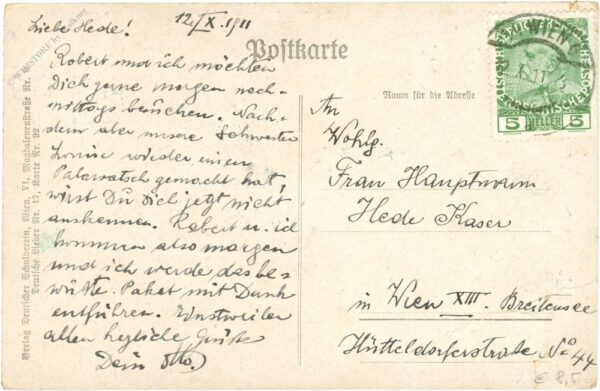 Liebe Hede!
12./IX. 1911
Robert und ich möchten
Dich gerne morgen nach-
mittags besuchen. Nach-
dem aber unsere Schwester
Louise wieder einen
Palawatsch gemacht hat,
wirst Du Dich jetzt nicht
auskennen. Robert u. ich
kommen also morgen
und ich werde das be-
wußte Paket mit Dank
entführen. Einstweilen
allen herzliche Grüße
Dein Otto.
Postkarte
Raum für die Adresse
An
Wohlg.
Frau Hauptmann
Hede Kaser
in Wien XIII. Breitensee
Hütteldorferstraße No 44
WIEN
5
HELLER
Verlag Deutscher Schulverein, Wien, VI. Magdalenenstraße Nr.
Deutsche Lieder Nr. 17, Karte Nr. 92.
€ 8,5